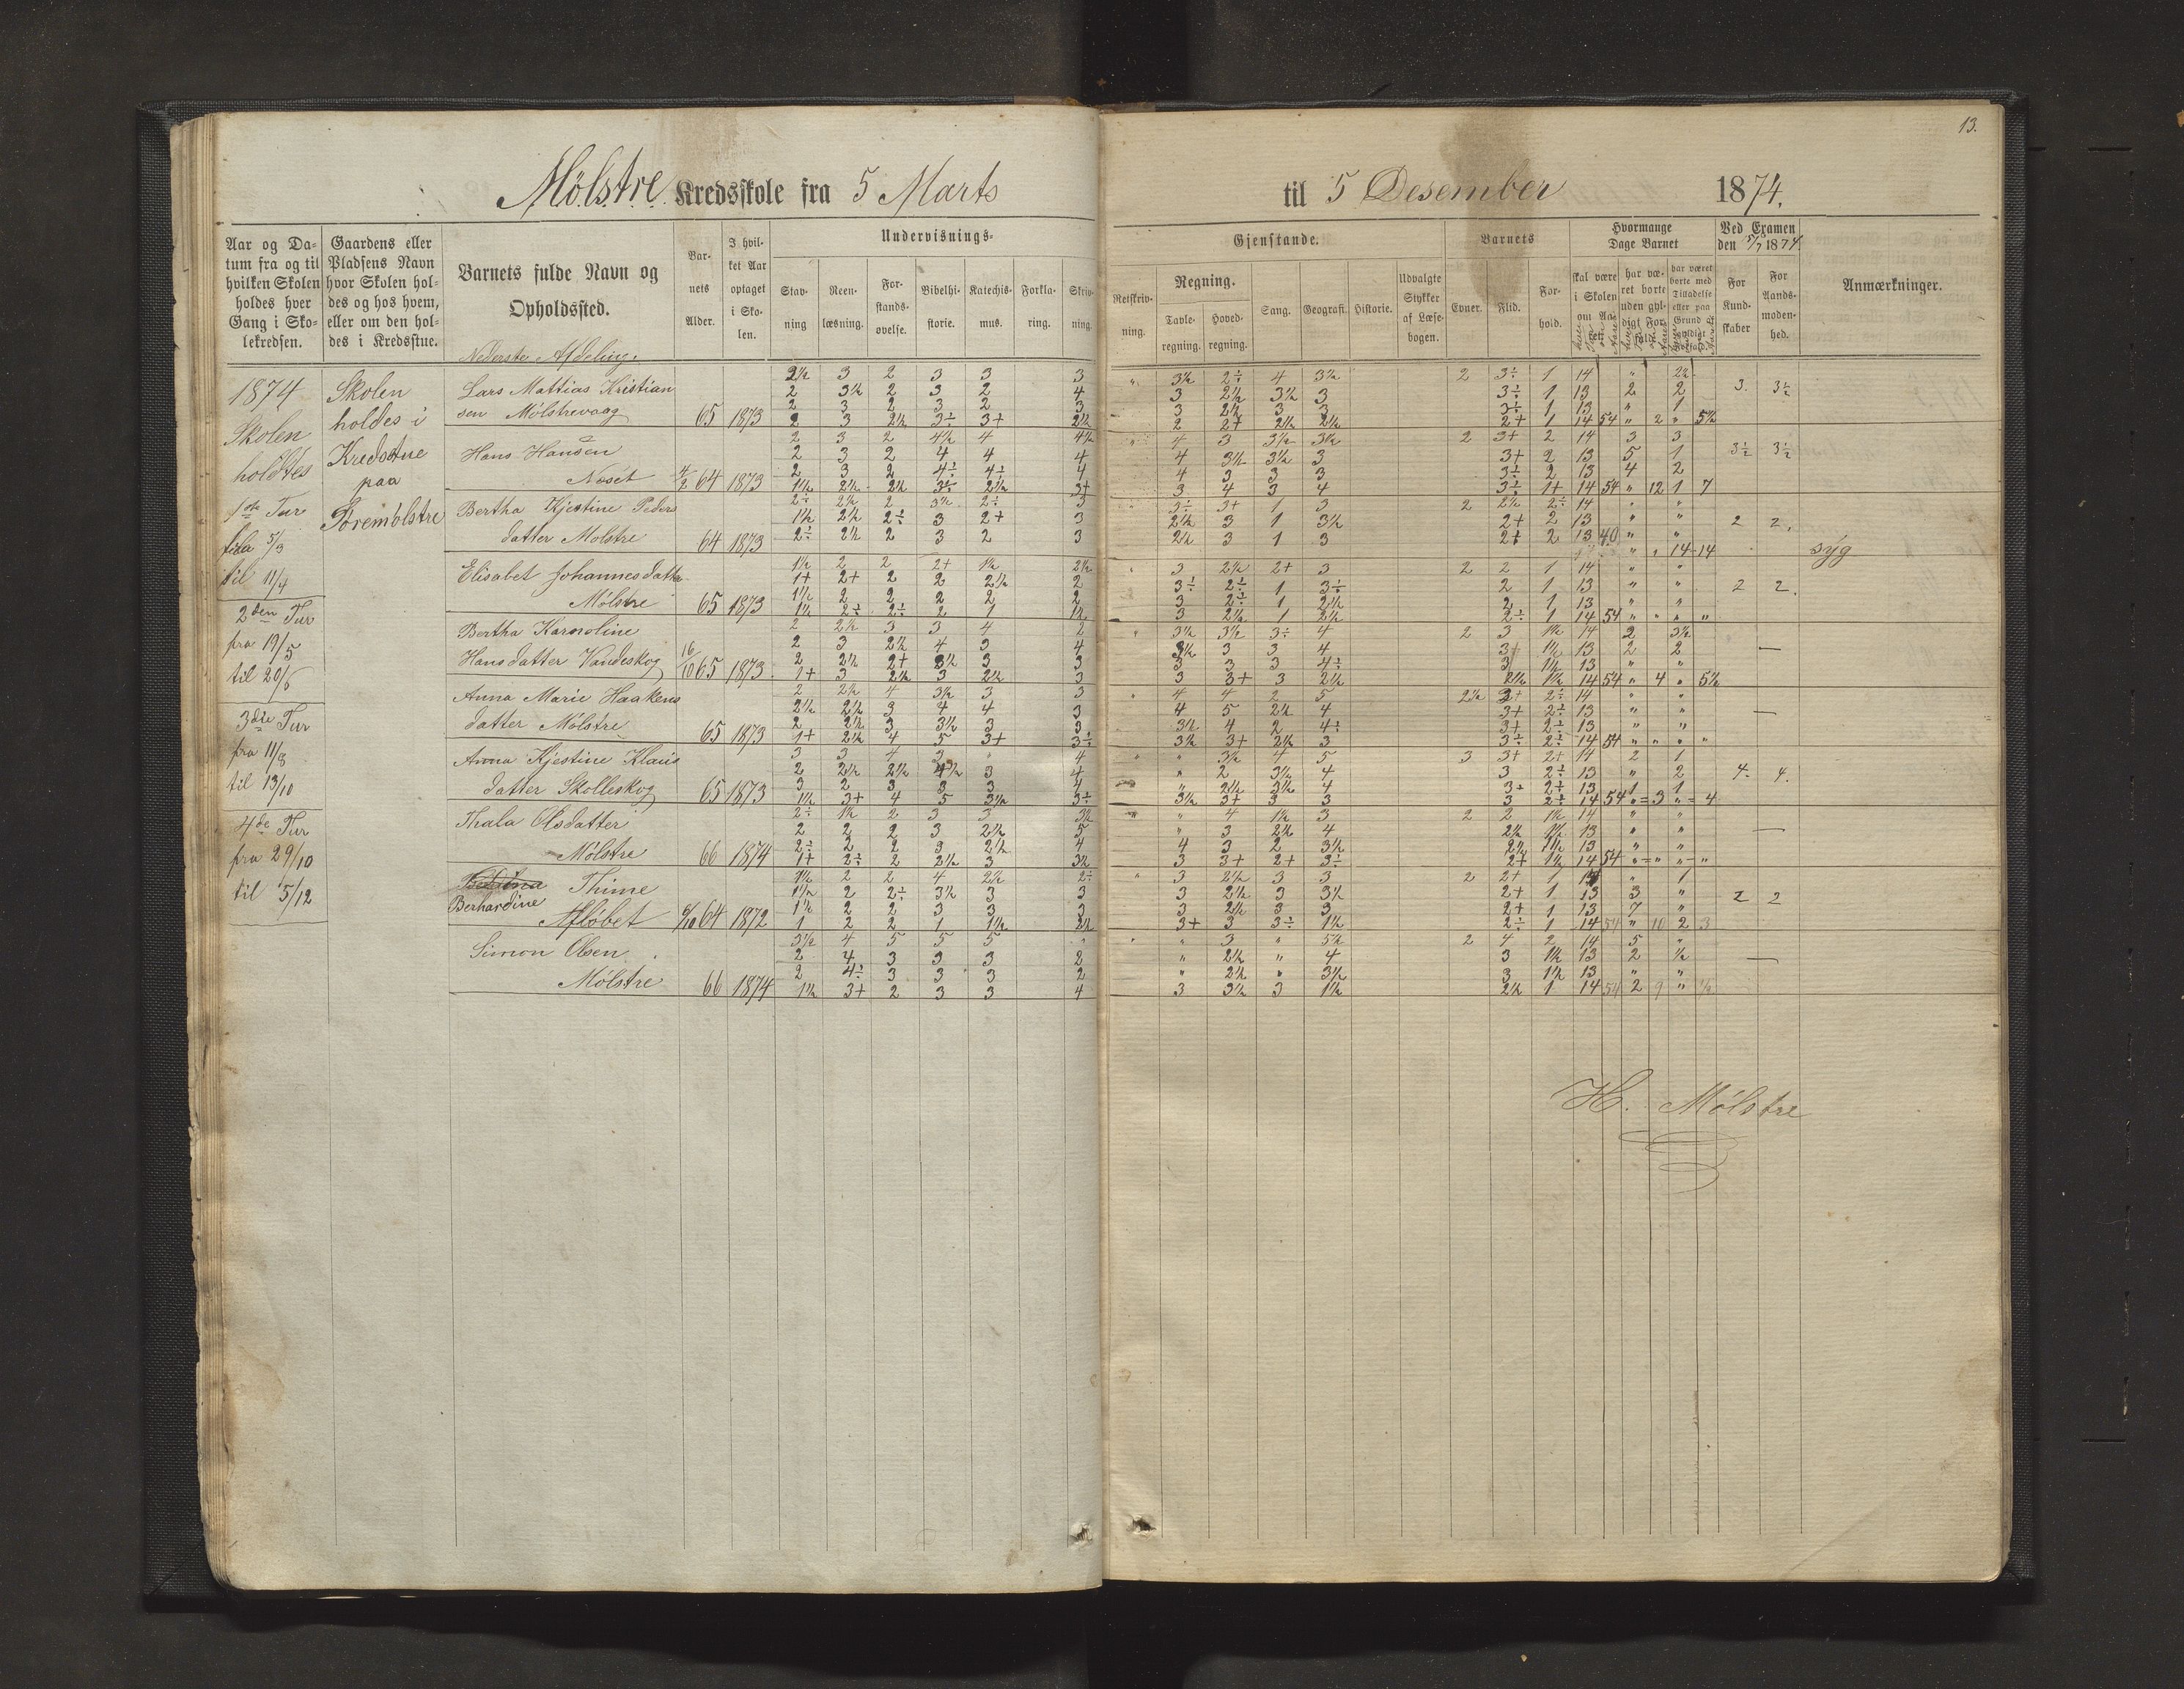 13.
Mølstre Kredsskole fra 5 Marts til 5 Desember 1874.
Aar og Da-
tum fra og til
hvilken Skolen
holdes hver
Gang i Sko-
lekredsen.
Gaardens eller
Pladsens Navn
hvor Skolen hol-
des og hos hvem,
eller om den hol-
des i Kredsstue.
Barnets fulde Navn og
Opholdssted.
Bar-
nets
Alder.
I hvil-
ket Aar
optaget
i Sko-
len.
Undervisnings-
Stav-
ning
Reen-
læsning.
For-
stands-
øvelse.
Bibelhi-
storie.
Katechis-
mus.
Forkla-
ring.
Skriv-
ning.
Gjenstande.
Retskriv-
ning.
Regning.
Tavle-
regning.
Hoved-
regning.
Sang.
Geografi.
Historie.
Udvalgte
Stykker
af Læse-
bogen.
Barnets
Evner.
Flid.
For-
hold.
Hvormange
Dage Barnet
skal være
i Skolen
om Aa-
ret.
har væ-
ret borte
uden gyl-
digt For-
fald.
har været
borte med
Tilladelse
eller paa
Grund af
gyldigt
Forfald.
Ved Examen
den 5/7 1874.
For
Kund-
skaber
For
Aands-
moden-
hed.
Anmærkninger.
Nederste Afdeling.
1874
Skolen
holdtes
1ste Tur
fra 5/3
til 11/4
2den Tur
fra 19/5
til 20/6
3die Tur
fra 11/8
til 13/10
4de Tur
fra 29/10
til 5/12
Skolen
holdes i
Kredstue
paa
Søremølstre
Lars Mattias Kristian 2½ 3 2 3 3 3 " 3½ 2÷ 4 3½ 2 3÷ 1 14 " 2½
2 3½ 2 3 2 4 3 2½ 3½ 3 3÷ 1 13 2 2 3. 3½
sen Mølstrevaag 2 3 2 3 2 3 3 2½ 3 3 3÷ 1 13 " 1
65 1873 2 3 2½ 3÷ 3+ 2½ 2 2+ 2½ 2½ 2+ 1 14 54 " 2 " 5½
Hans Hansen 2 3 2 4½ 4 4½ " 4 3 3½ 3½ 2 3+ 2 14 3 3
2 3 2 4 4 4 4 3½ 3½ 3 3+ 2 13 5 1 3½ 3½
Nøsét 2 3 2 4÷ 4÷ 4 4 3 3 3 3÷ 2 13 4 2
4/2 64 1873 1½ 2½ 2½ 3÷ 2½ 3+ 3 4 3 4 3÷ 1+ 14 54 " 12 1 7
Bertha Kjestine Peders 2÷ 2½ 2 3½ 2÷ 3 3÷ 3+ 1 3 2 2½ 2÷ 14 " "
1½ 2½ 2÷ 3 2+ 3 2½ 3 1 3½ 2+ 2 13 " " 2 2.
datter Mølstre 64 1873 2÷ 2½ 2 3 2 3 2½ 3 1 3 2+ 2 13 40 " "
" " 14 14 syg
Elisabet Johannesdatter 1½ 2 2 2+ 1½ 2½ " 3 2½ 2+ 3 2 2 1 14 " "
1+ 2+ 2 2 2½ 2 3÷ 2÷ 1 3÷ 2 1 13 " " 2 2.
Mølstre 1½ 2 2 2 2 2 3 2÷ 1 2½ 2 1 13 " "
65 1873 1½ 2÷ 2÷ 2 1 1½ 3 2½ 1 2½ 2÷ 1 14 54 " " " "
Bertha Karnoline 2 2½ 3 3 4 2 " 3½ 3½ 3÷ 4 2 3 1½ 14 2 3½
2 3 2½ 4 3 4 3½ 3 3 4 3+ 1½ 13 2 2 —
Hansdatter Vandeskog 2 2½ 2+ 3½ 3 3 3 3 3 4÷ 3 1½ 13 " "
16/10 65 1873. 1+ 3 2½ 3 2½ 3 3 3+ 3 2½ 2½ 1½ 14 54 " 4 " 5½
Anna Marie Haakens 2 2½ 4 3½ 3 3 " 4 4 2 5 2½ 3+ 2÷ 14 " "
2½ 2½ 3 4 4 3 4 5 2½ 4 3+ 2÷ 13 " " —
datter Mølstre 2 2½ 3 3½ 3 3 3½ 4 2 4÷ 3+ 2÷ 13 " "
65 1873 1+ 2½ 4 5 3+ 3÷ 3½ 3+ 2½ 3 3÷ 2÷ 14 54 " " " "
Anna Kjestine Klaus 3 3 4 3 " 4 " " 3½ 4 5 3 3+ 2+ 14 2 1
2 2½ 2½ 4½ 3 4 " 2 3½ 4 3 2÷ 13 " 2 4. 4.
datter Skolleskog 3 2 3 3 3 4 " 2½ 3½ 4 3+ 2÷ 13 1 1
65 1873 1½ 3+ 4 5 3½ 3÷ 3½ 3+ 3 3 3 2÷ 14 54 " 3 " 4
Thala Olsdatter 2÷ 1½ 2 3 3 3½ " " 4 1½ 3 2 2 1½ 14 " "
2 2 2 3 2½ 5 " 3 2½ 4 2½ 1½ 13 " " —
Mølstre 2÷ 2 2 3 2½ 4 4 3 2 3½ 2½ 1½ 13 " "
66 1874 1+ 2÷ 2 2½ 3 3½ 3 3+ 2+ 3÷ 2+ 1½ 14 54 " " " "
Thime 1½ 2 2 4 2½ 2÷ " 3 2½ 3 3 2 2+ 1 14 " 1
Berhardine 1½ 2 2÷ 3½ 3 3 3 2½ 3 3½ 2+ 1 13 3 " 2 2
Afløbet 1½ 2 2 3 3 3 3 2½ 3 3 2+ 1 13 7 "
6/10 64 1872 1 2 2 1 1½ 2½ 3+ 3 3÷ 1½ 2÷ 1 14 54 " 10 2 3
Simon Olsen 3½ 4 5 5 5 " " " 3 " 5½ 2 4 2 14 5 "
2 4 3 3 3 2 " 2½ " 4 3 1½ 13 2 ½ —
Mølstre 2 4÷ 3 3 3 2 " 2½ " 3½ 3 1½ 13 " "
66 1874 1½ 3+ 2 3 3 4 3 3½ 3 1½ 2½ 1 14 54 2 9 " ½
H. Mølstre